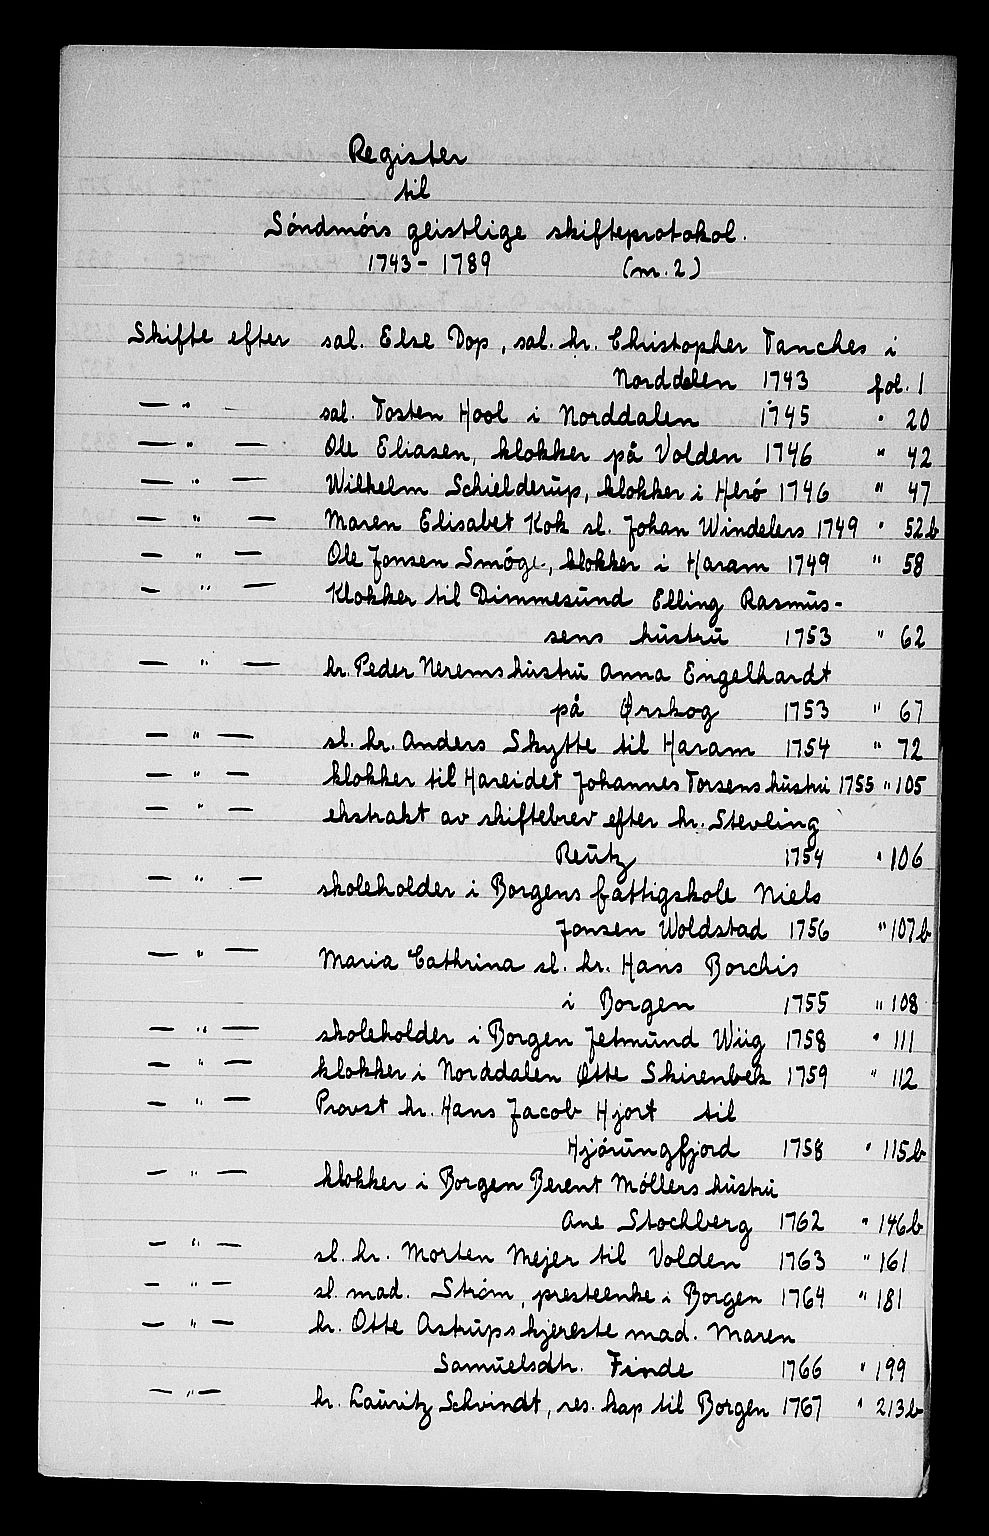 Register
til
Søndmørs geistlige skifteprotokol.
1743 - 1789 (nr. 2)
Skifte efter sal. Else Dop, sal. hr. Christopher Tanches i
Norddalen 1743 fol. 1
— " - sal. Tosten Hool i Norddalen 1745 " 20
— " — Ole Eliasen, klokker på Volden 1746 " 42
— " — Wilhelm Schielderup, klokker i Herø 1746 " 47
— " — Maren Elisabet Kok sl. Johan Windelers 1749 " 52b
— " — Ole Jonsen Smøge, klokker i Haram 1749 " 58
— " — Klokker til Dimmesund Elling Rasmus-
sens hustru 1753 " 62
— " — hr. Peder Nerems hustru Anna Engelhardt
på Ørskog 1753 " 67
— " — sl. hr. Anders Skytte til Haram 1754 " 72
— " — klokker til Hareidet Johannes Torsens hustru 1755 " 105
— " — ekstrakt av skiftebrev efter hr. Stevling
Reutz 1754 " 106
— " — skoleholder i Borgens fattigskole Niels
Jonsen Woldstad 1756 " 107b
— " — Maria Cathrina sl. hr. Hans Borchis
i Borgen 1755 " 108
— " — skoleholder i Borgen Jetmund Wiig 1758 " 111
— " — klokker i Norddalen Otte Skirenbek 1759 " 112
— " — Provst hr. Hans Jacob Hjort til
Hjørungfjord 1758 " 115b
— " — klokker i Borgen Berent Møllers hustru
Ane Stochberg 1762 " 146b
— " — sl. hr. Morten Mejer til Volden 1763 " 161
— " — sl. mad. Strøm, presteenke i Borgen 1764 " 181
— " — hr. Otte Astrups kjereste mad. Maren
Samuelsdtr. Finde 1766 " 199
— " — hr. Lauritz Schvindt, res. kap til Borgen 1767 " 213b